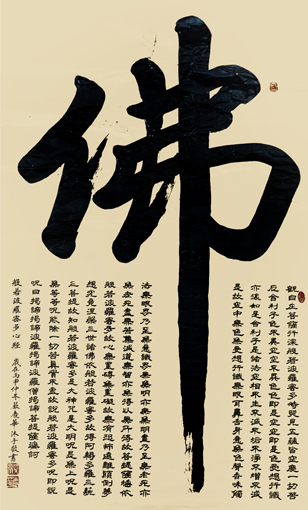 佛
觀自在菩薩行深般若波羅蜜多時照見五蘊皆空度一切苦
厄舍利子色不異空空不異色色即是空空即是色受想行識
亦復如是舍利子是諸法空相不生不滅不垢不淨不增不減
是故空中無色無受想行識無眼耳鼻舌身意無色聲香味觸
法無眼界乃至無意識界無無明亦無無明盡乃至無老死亦
無老死盡無苦集滅道無智亦無得以無所得故菩提薩埵依
般若波羅蜜多故心無罣礙無罣礙故無有恐怖遠離顛倒夢
想究竟涅槃三世諸佛依般若波羅蜜多故得阿耨多羅三藐
三菩提故知般若波羅蜜多是大神咒是大明咒是無上咒是
無等等咒能除一切苦真實不虛故說般若波羅蜜多咒即說
咒曰揭諦揭諦波羅揭諦波羅僧揭諦菩提薩婆訶
般若波羅蜜多心經 歲在丙申仲冬